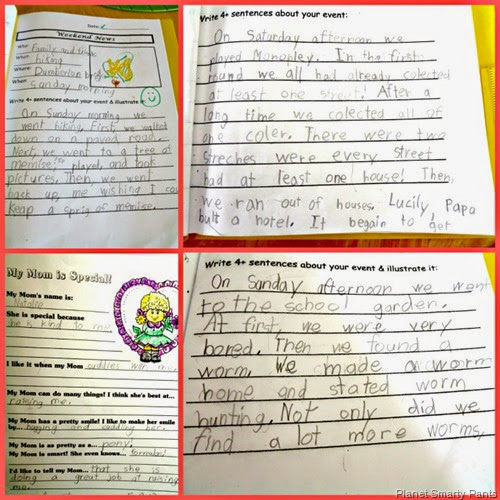 Weekend News
Who: Family and
When: hiking
Where: Dumberton
When: Sunday morning
Write 4+ sentences about your event & illustrate it:
On Sunday morning we
went hiking. First, we walked
down on a paved road.
Next, we went to a tree at
played, and took
pictures. Then, we went
back up, me wishing I
Keap a sprig of
Write 4+ sentences about your event:
On Saturday afternoon we
played Monopley. In the first
round we all had already colected
at least one street! After a
long time we colected all of
one coler. There were two
streches were every street
had at least one house! Then,
we ran out of houses. Lucily, Papa
built a hotel. It begain to get
My Mom is Special!
My Mom's name is:
Natalie
She is special because
she is kind to
I like it when my Mom cuddles with
My Mom can do many things! I think she's best at...
raising me.
My Mom has a pretty smile! I like to make her smile
by... hugging and cuddling her.
My Mom is as pretty as a... pony.
My Mom is smart! She even knows...
I'd like to tell my Mom... that she is
doing a great job at raising
me.
Write 4+ sentences about your event & illustrate it:
On Sunday afternoon we went
to the school garden.
At first, we were very
bored. Then we found a
worm. We made a worm
home and stated worm
hunting. Not only did we
find a lot more worms,
Planet Smarty Pants